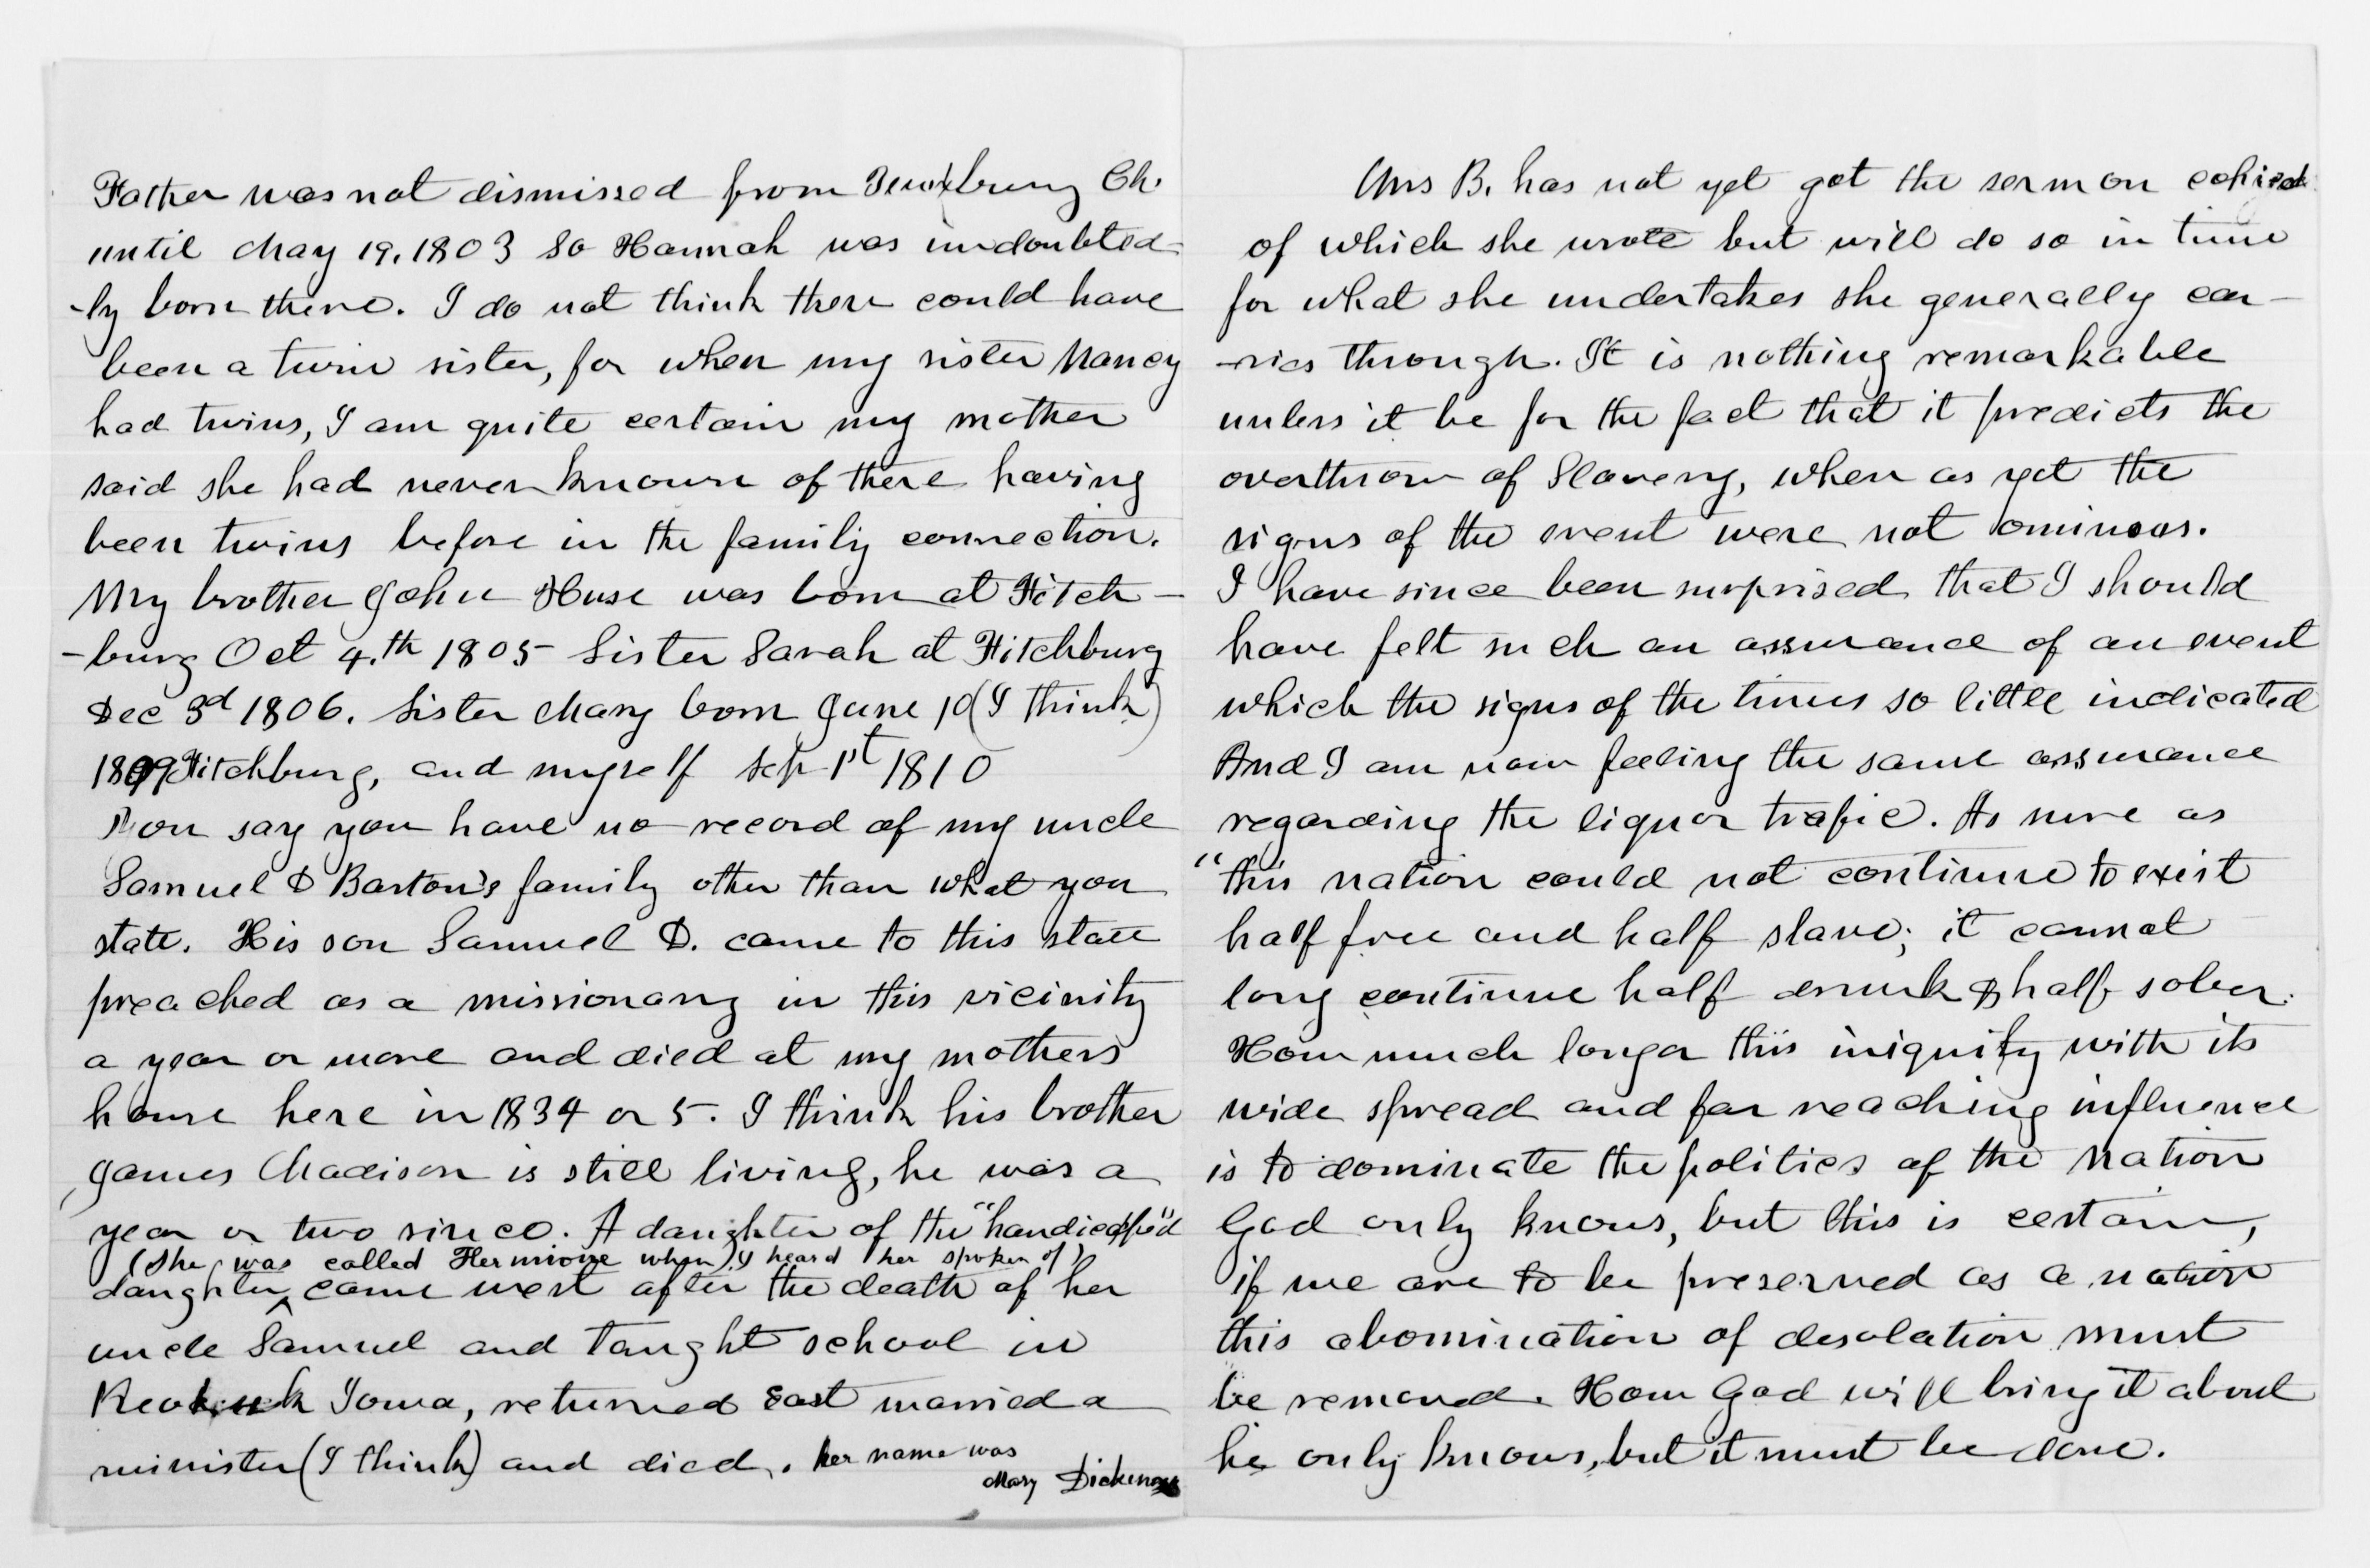 Father was not dismissed from Tewxbury Ch.
until May 19, 1803 so Hannah was undoubted-
-ly born there. I do not think there could have
been a twin sister, for when my sister Nancy
had twins, I am quite certain my mother
said she had never known of there having
been twins before in the family connection.
My brother John Huse was born at Fitch-
-burg Oct 4.th 1805- Sister Sarah at Fitchburg
Dec 3d 1806. Sister Mary born June 10 (I think)
1809 Fitchburg, and myself Sep 1st 1810
You say you have no record of my uncle
Samuel & Barton's family other than what you
state. His son Samuel D. came to this state
preached as a missionary in this vicinity
a year or more and died at my mothers
house here in 1834 or 5-. I think his brother
James Madison is still living, he was a
year or two since. A daughter of the "handicap'd"
(she was called Hermione when I heard her spoken of)
daughter ^ came west after the death of her
uncle Samuel and taught school in
Keokuk Iowa, returned east married a
minister (I think) and died. her name was
Mary Dickinson
Mrs B. has not yet got the sermon copied
of which she wrote but will do so in time
for what she undertakes she generally car-
-ries through. It is nothing remarkable
unless it be for the fact that it predicts the
overthrow of Slavery, when as yet the
signs of the event were not ominous.
I have since been surprised that I should
have felt such an assurance of an event
which the signs of the times so little indicated
And I am now feeling the same assurance
regarding the liquor trafic. As sure as
"this nation could not continue to exist
half free and half slave; it cannot
long continue half drunk & half sober.
How much longer this iniquity with its
wide spread and far reaching influence
is to dominate the politics of the nation
God only knows, but this is certain,
if we are to be preserved as a nation
this abomination of desolation must
be removed. How God will bring it about
he only knows, but it must be done.